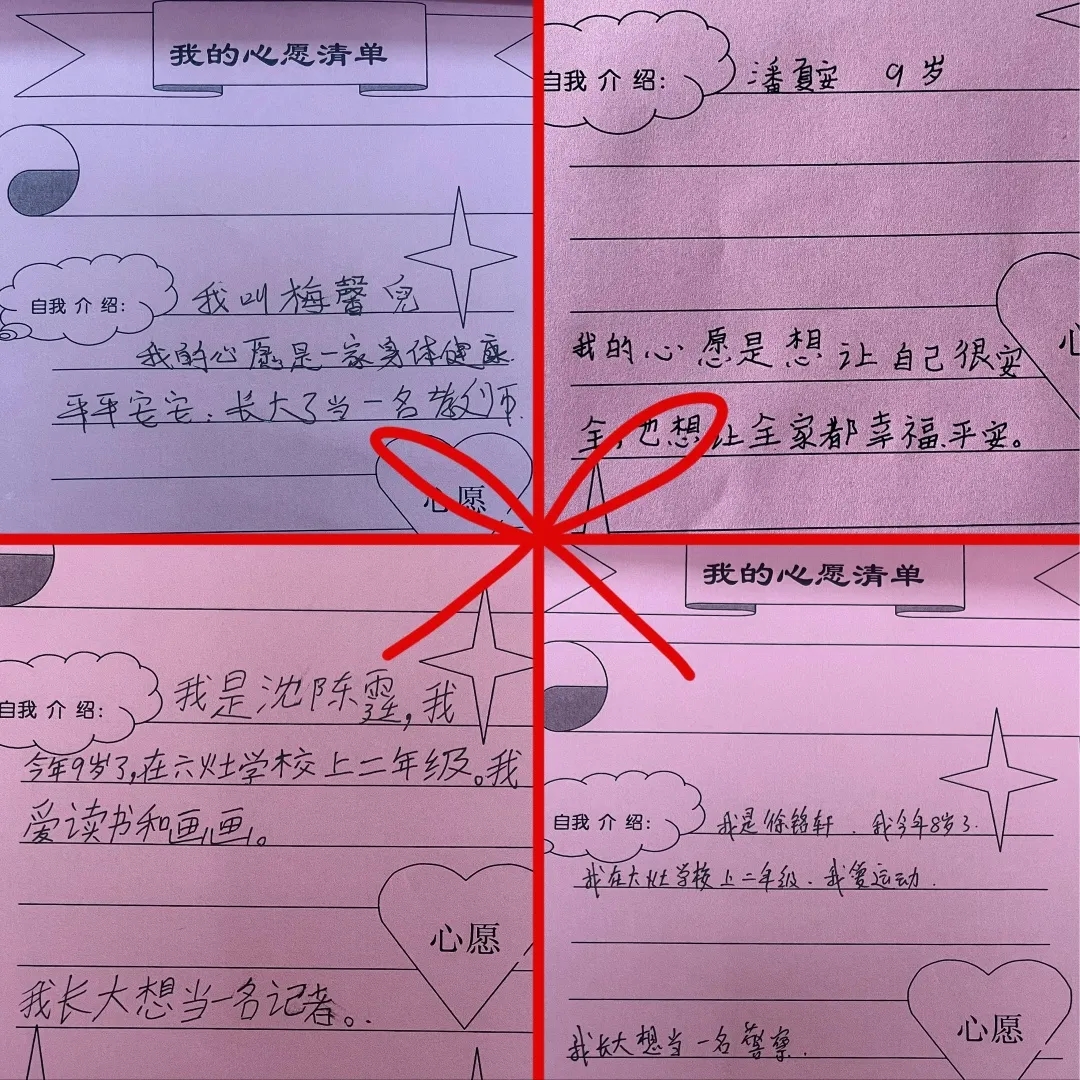 我的心愿清单
自我介绍：我叫梅馨儿
我的心愿是一家身体健康
平平安安．长大了当一名教师．
心愿
自我介绍：潘夏安 9岁
我的心愿是想让自己很安
全，也想让全家都幸福平安。
心
自我介绍：我是沈陈霆，我
今年9岁了，在六灶学校上二年级。我
爱读书和画画。
心愿
我长大想当一名记者。
我的心愿清单
自我介绍：我是徐铭轩．我今年8岁了．
我在六灶学校上二年级．我爱运动．
心愿
我长大想当一名警察．